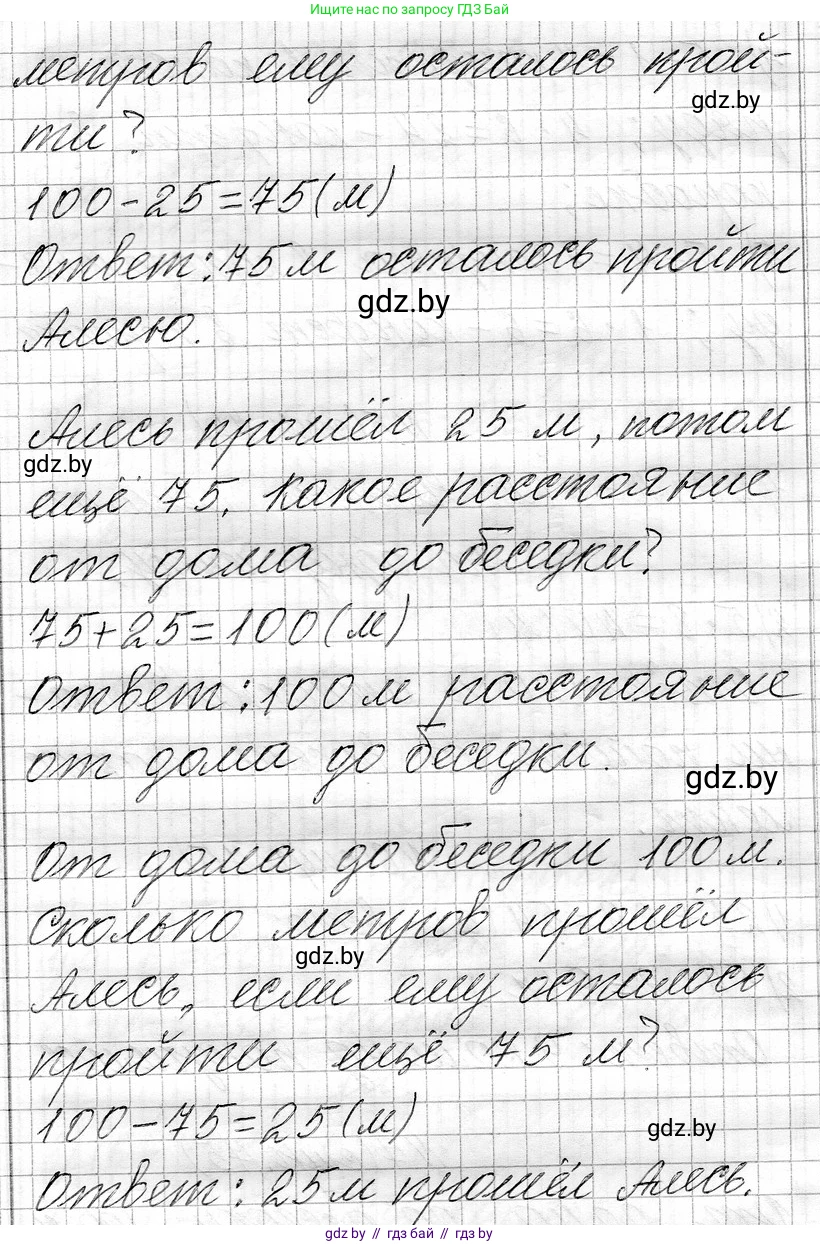 Ищите нас по запросу ГДЗ Бай
метров ему осталось прой-
gdz.by
ти?
100-25=75(м)
Ответ: 75 м осталось пройти
gdz.by
Алесю.
Алесь прошёл 25 м, потом
gdz.by
ещё 75. Какое расстояние
от дома до беседки?
75+25=100(м)
Ответ: 100 м расстояние
от дома до беседки.
gdz.by
От дома до беседки 100 м.
Сколько метров прошёл
gdz.by
Алесь, если ему осталось
пройти ещё 75 м?
100-75=25(м)
gdz.by
Ответ: 25 м прошёл Алесь.
gdz.by // гдз бай // gdz by